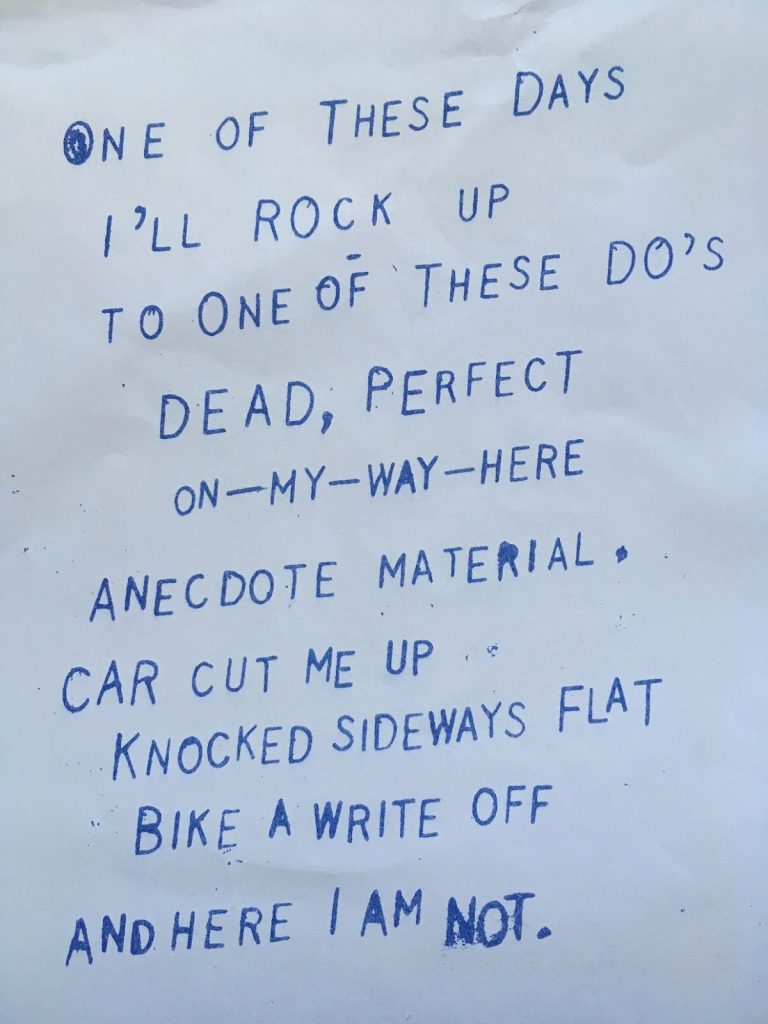 ONE OF THESE DAYS
I'LL ROCK UP
TO ONE OF THESE DO'S
DEAD, PERFECT
ON—MY—WAY—HERE
ANECDOTE MATERIAL.
CAR CUT ME UP
KNOCKED SIDEWAYS FLAT
BIKE A WRITE OFF
AND HERE I AM NOT.